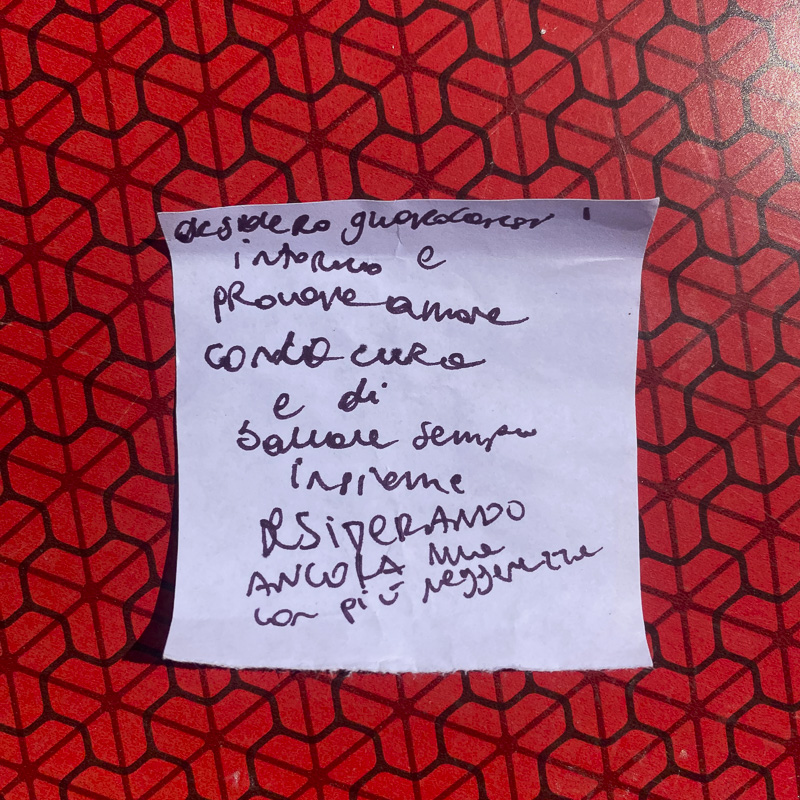 desidero guardarci
intorno e
provare amore
con la cura
e di
ballare sempre
insieme
RSIPERANDO
ANCORA ma
con più leggerezza